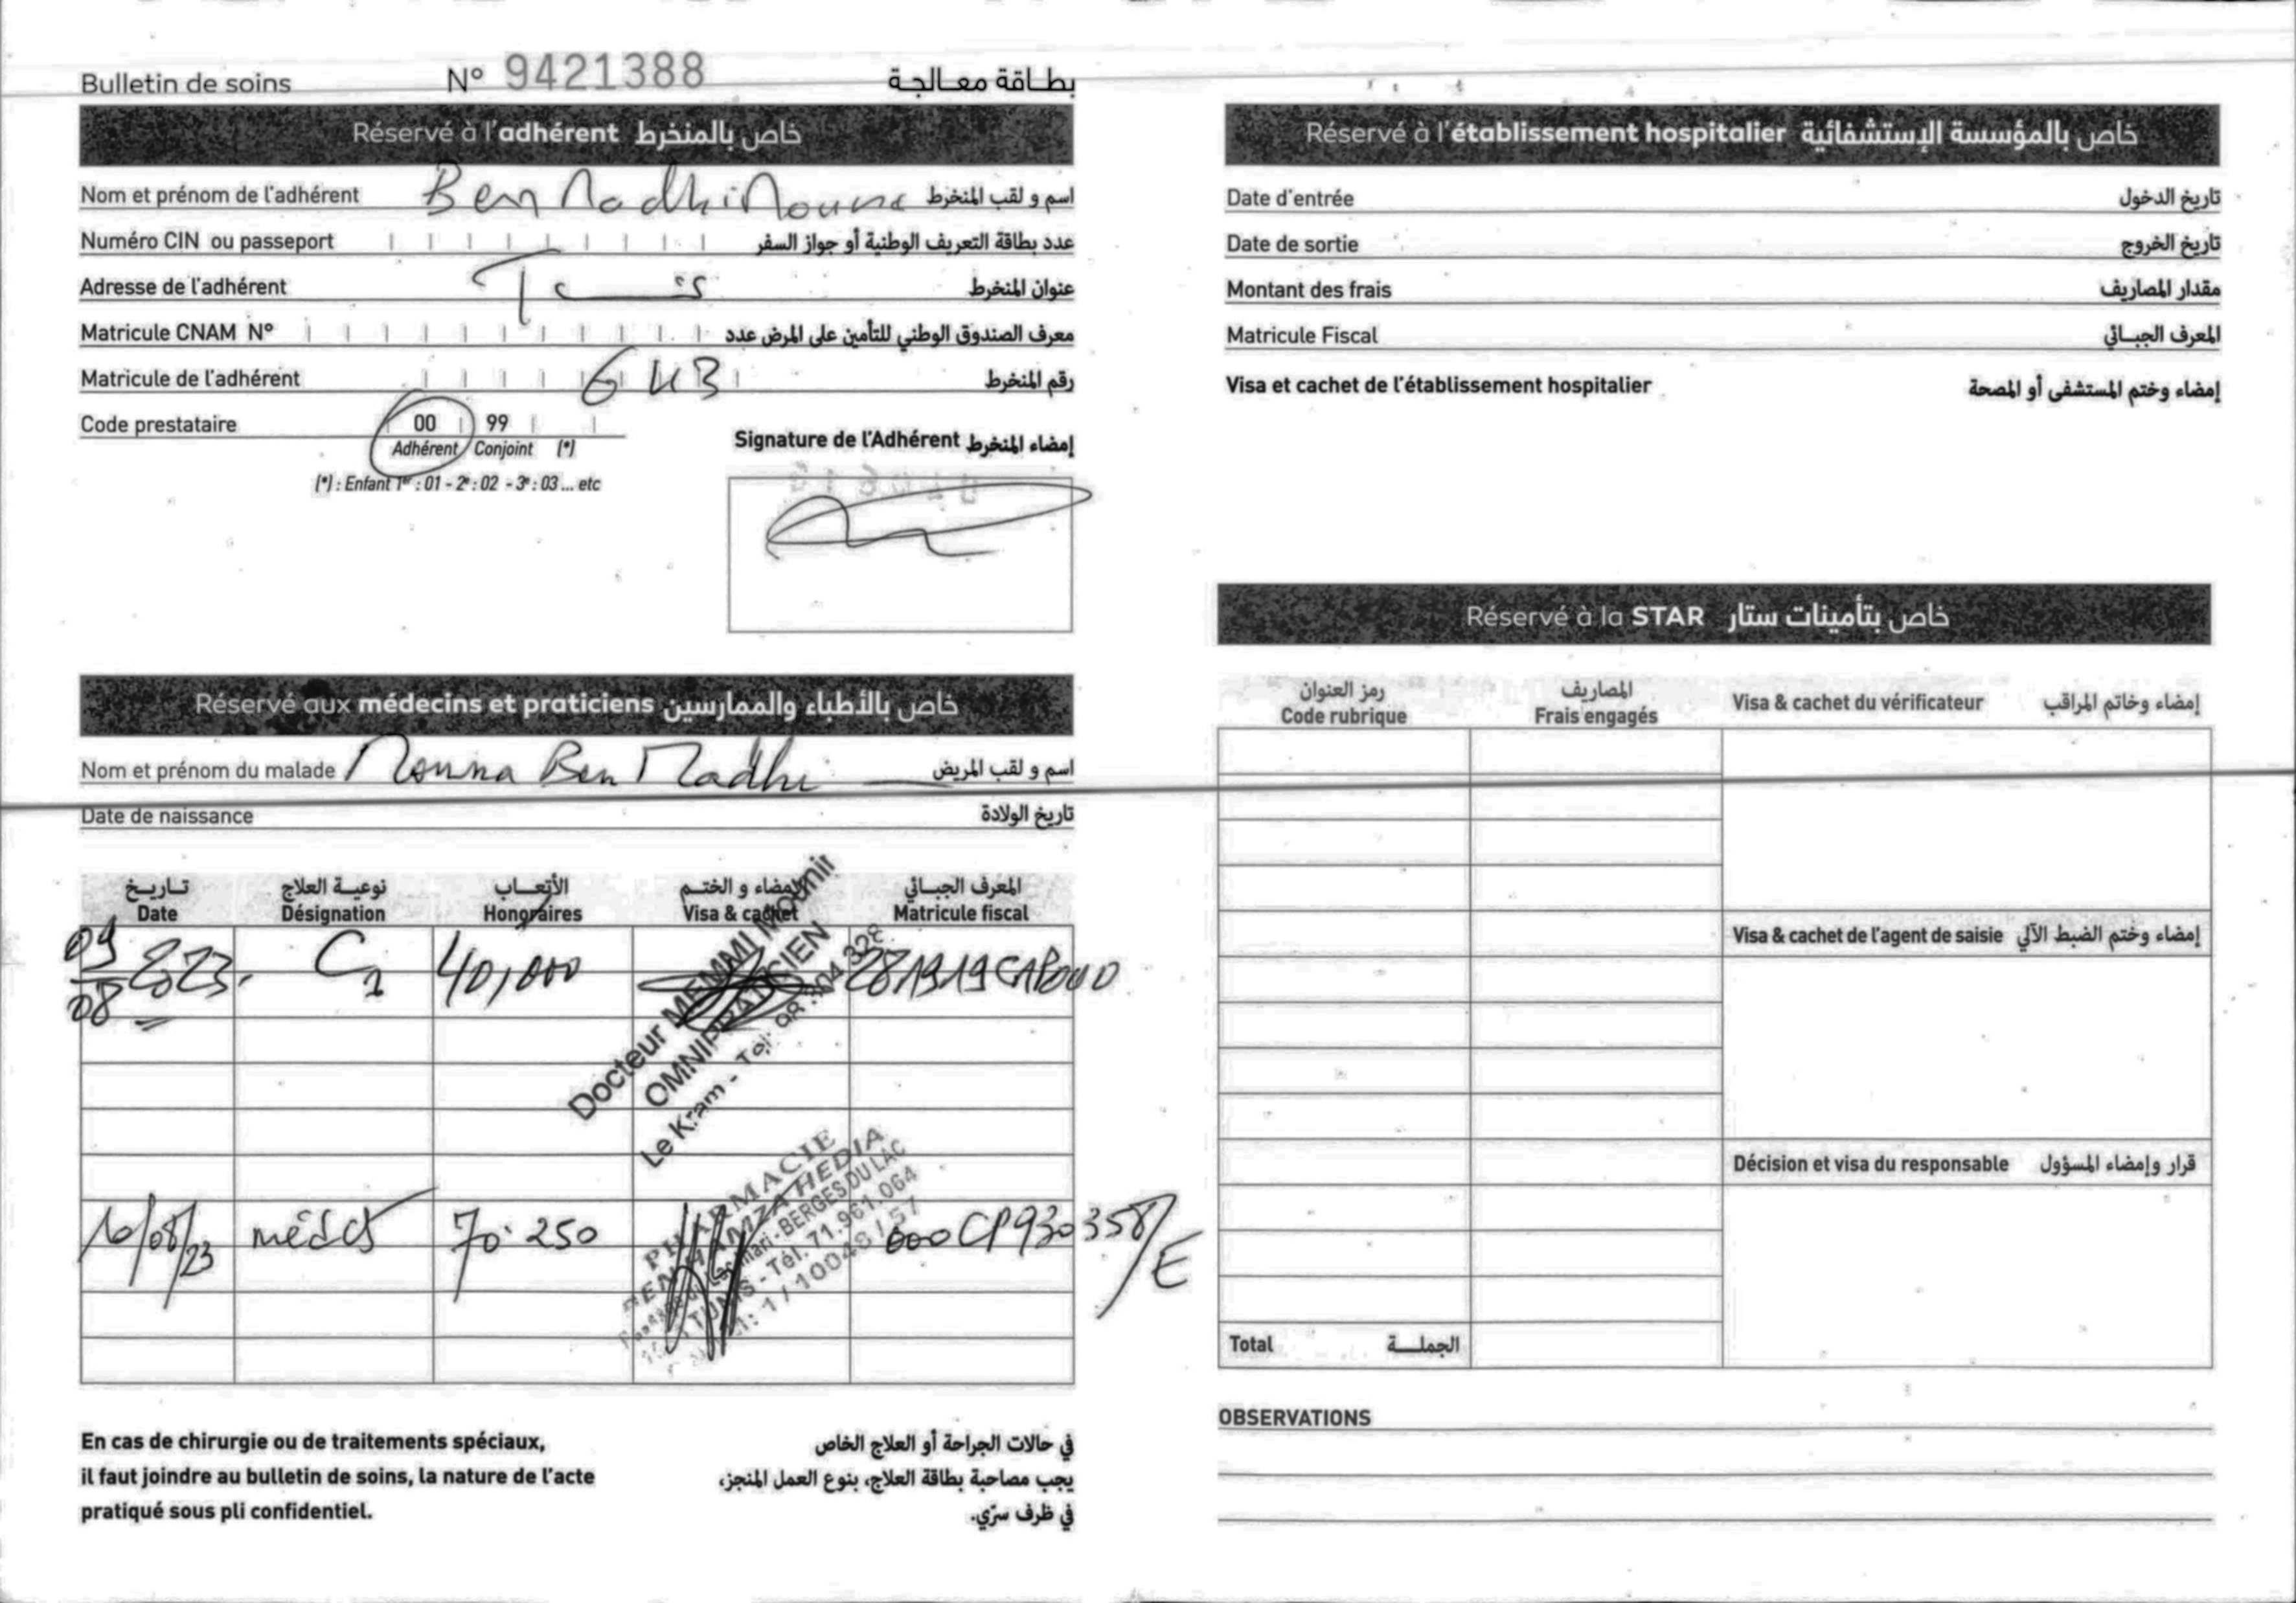 Bulletin de soins N° 9421388 بطاقة معالجة
Réservé à l'adhérent خاص بالمنخرط
Nom et prénom de l'adhérent Ben Madhi Mouna اسم و لقب المنخرط
Numéro CIN ou passeport عدد بطاقة التعريف الوطنية أو جواز السفر
Adresse de l'adhérent عنوان المنخرط
Matricule CNAM N° معرف الصندوق الوطني للتأمين على المرض عدد
Matricule de l'adhérent رقم المنخرط
Code prestataire 00 99
Adhérent Conjoint (*)
(*) : Enfant 1er : 01 - 2e : 02 - 3e : 03 ... etc
Signature de l'Adhérent إمضاء المنخرط
Réservé aux médecins et praticiens خاص بالأطباء والممارسين
Nom et prénom du malade Mouna Ben Madhi اسم و لقب المريض
Date de naissance تاريخ الولادة
تاريخ نوعية العلاج الأتعاب الإمضاء و الختم المعرف الجبائي
Date Désignation Honoraires Visa & cachet Matricule fiscal
09/08 2023. 40,000
Docteur MEMMI Mounir
OMNIPRATICIEN
Le Kram - Tél: 98 304 328
10/08/23 médct 70.250 000CP930358/E
PHARMACIE
BEN HAMZA HEDIA
BERGES DU LAC
TUNIS - Tél. 71.961.064
1 / 10048 / 57
En cas de chirurgie ou de traitements spéciaux,
il faut joindre au bulletin de soins, la nature de l'acte
pratiqué sous pli confidentiel.
في حالات الجراحة أو العلاج الخاص
يجب مصاحبة بطاقة العلاج، بنوع العمل المنجز،
في ظرف سرّي.
Réservé à l'établissement hospitalier خاص بالمؤسسة الإستشفائية
Date d'entrée تاريخ الدخول
Date de sortie تاريخ الخروج
Montant des frais مقدار المصاريف
Matricule Fiscal المعرف الجبائي
Visa et cachet de l'établissement hospitalier إمضاء وختم المستشفى أو المصحة
Réservé à la STAR خاص بتأمينات ستار
رمز العنوان المصاريف
Code rubrique Frais engagés Visa & cachet du vérificateur إمضاء وخاتم المراقب
Visa & cachet de l'agent de saisie إمضاء وختم الضبط الآلي
Décision et visa du responsable قرار وإمضاء المسؤول
Total الجملة
OBSERVATIONS